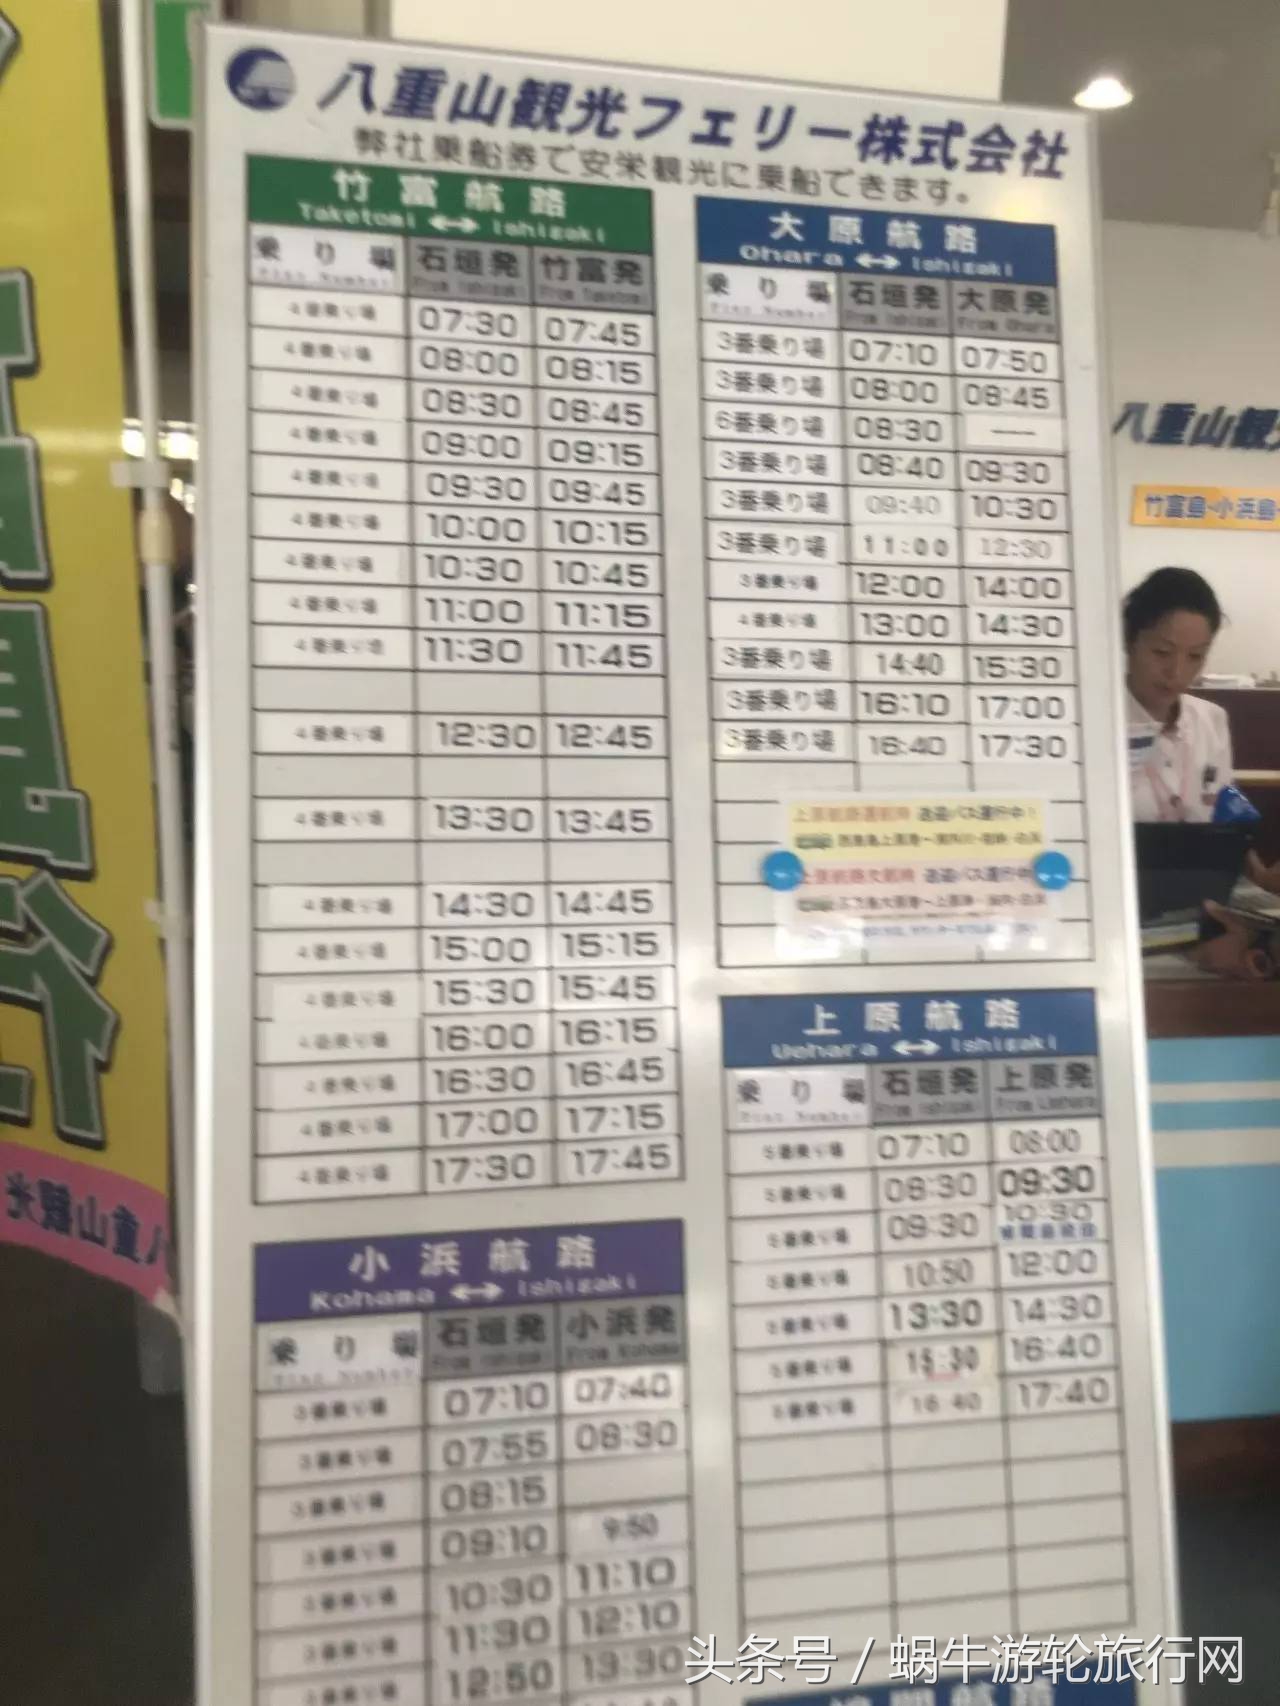 八重山観光フェリー株式会社
弊社乗船券で安栄観光に乗船できます。
竹富航路
Taketomi ↔ Ishigaki
乗り場 石垣発 竹富発
4番乗り場 07:30 07:45
4番乗り場 08:00 08:15
4番乗り場 08:30 08:45
4番乗り場 09:00 09:15
4番乗り場 09:30 09:45
4番乗り場 10:00 10:15
4番乗り場 10:30 10:45
4番乗り場 11:00 11:15
4番乗り場 11:30 11:45
4番乗り場 12:30 12:45
4番乗り場 13:30 13:45
4番乗り場 14:30 14:45
4番乗り場 15:00 15:15
4番乗り場 15:30 15:45
4番乗り場 16:00 16:15
4番乗り場 16:30 16:45
4番乗り場 17:00 17:15
4番乗り場 17:30 17:45
小浜航路
Kohama ↔ Ishigaki
乗り場 石垣発 小浜発
3番乗り場 07:10 07:40
3番乗り場 07:55 08:30
3番乗り場 08:15
3番乗り場 09:10 9:50
3番乗り場 10:30 11:10
3番乗り場 11:30 12:10
12:50 13:30
大原航路
Ohara ↔ Ishigaki
乗り場 石垣発 大原発
3番乗り場 07:10 07:50
3番乗り場 08:00 08:45
6番乗り場 08:30 ——
3番乗り場 08:40 09:30
3番乗り場 09:40 10:30
3番乗り場 11:00 12:30
3番乗り場 12:00 14:00
4番乗り場 13:00 14:30
3番乗り場 14:40 15:30
3番乗り場 16:10 17:00
3番乗り場 16:40 17:30
上原航路運航時 送迎バス運行中！
上原航路欠航時 送迎バス運行中
上原航路
Uehara ↔ Ishigaki
乗り場 石垣発 上原発
5番乗り場 07:10 08:00
5番乗り場 08:30 09:30
5番乗り場 09:30 10:30
5番乗り場 10:50 12:00
5番乗り場 13:30 14:30
5番乗り場 15:30 16:40
5番乗り場 16:40 17:40
八重山観光
竹富島・小浜島・
头条号 / 蜗牛游轮旅行网